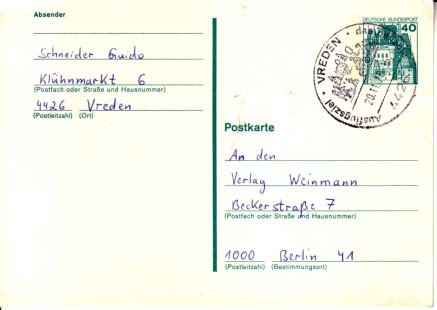 Absender
Schneider Guido
Klühnmarkt 6
(Postfach oder Straße und Hausnummer)
4426 Vreden
(Postleitzahl) (Ort)
DEUTSCHE BUNDESPOST
40
VREDEN
Ausflugsziel
das
20.1
442
Postkarte
An den
Verlag Weinmann
Beckerstraße 7
(Postfach oder Straße und Hausnummer)
1000 Berlin 41
(Postleitzahl) (Bestimmungsort)